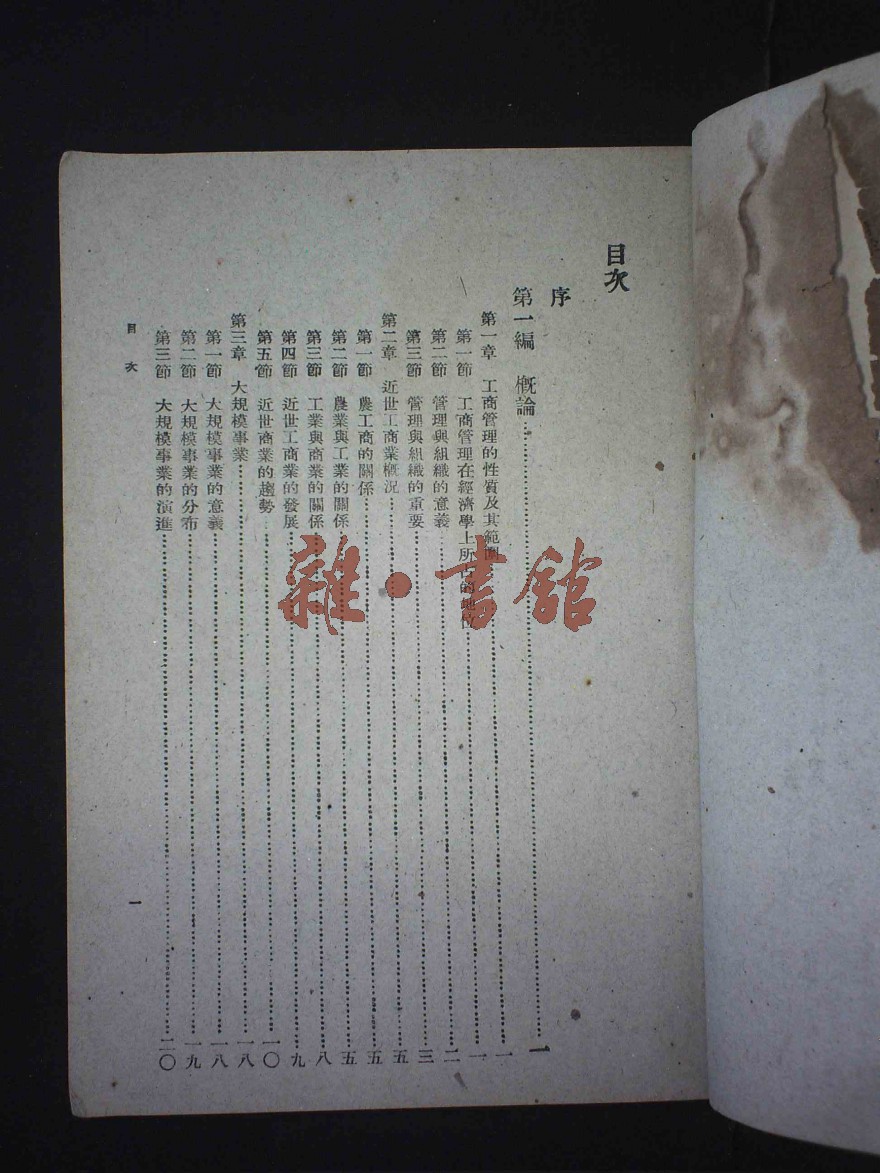 目次
序
第一編　概論……一
第一章　工商管理的性質及其範圍……一
第一節　工商管理在經濟學上所占的地位……一
第二節　管理與組織的意義……二
第三節　管理與組織的重要……三
第二章　近世工商業概況……五
第一節　農工商的關係……五
第二節　農業與工業的關係……五
第三節　工業與商業的關係……八
第四節　近世工商業的發展……九
第五節　近世商業的趨勢……一〇
第三章　大規模事業……一八
第一節　大規模事業的意義……一八
第二節　大規模事業的分布……一九
第三節　大規模事業的演進……二〇
目次
一
雜·書館